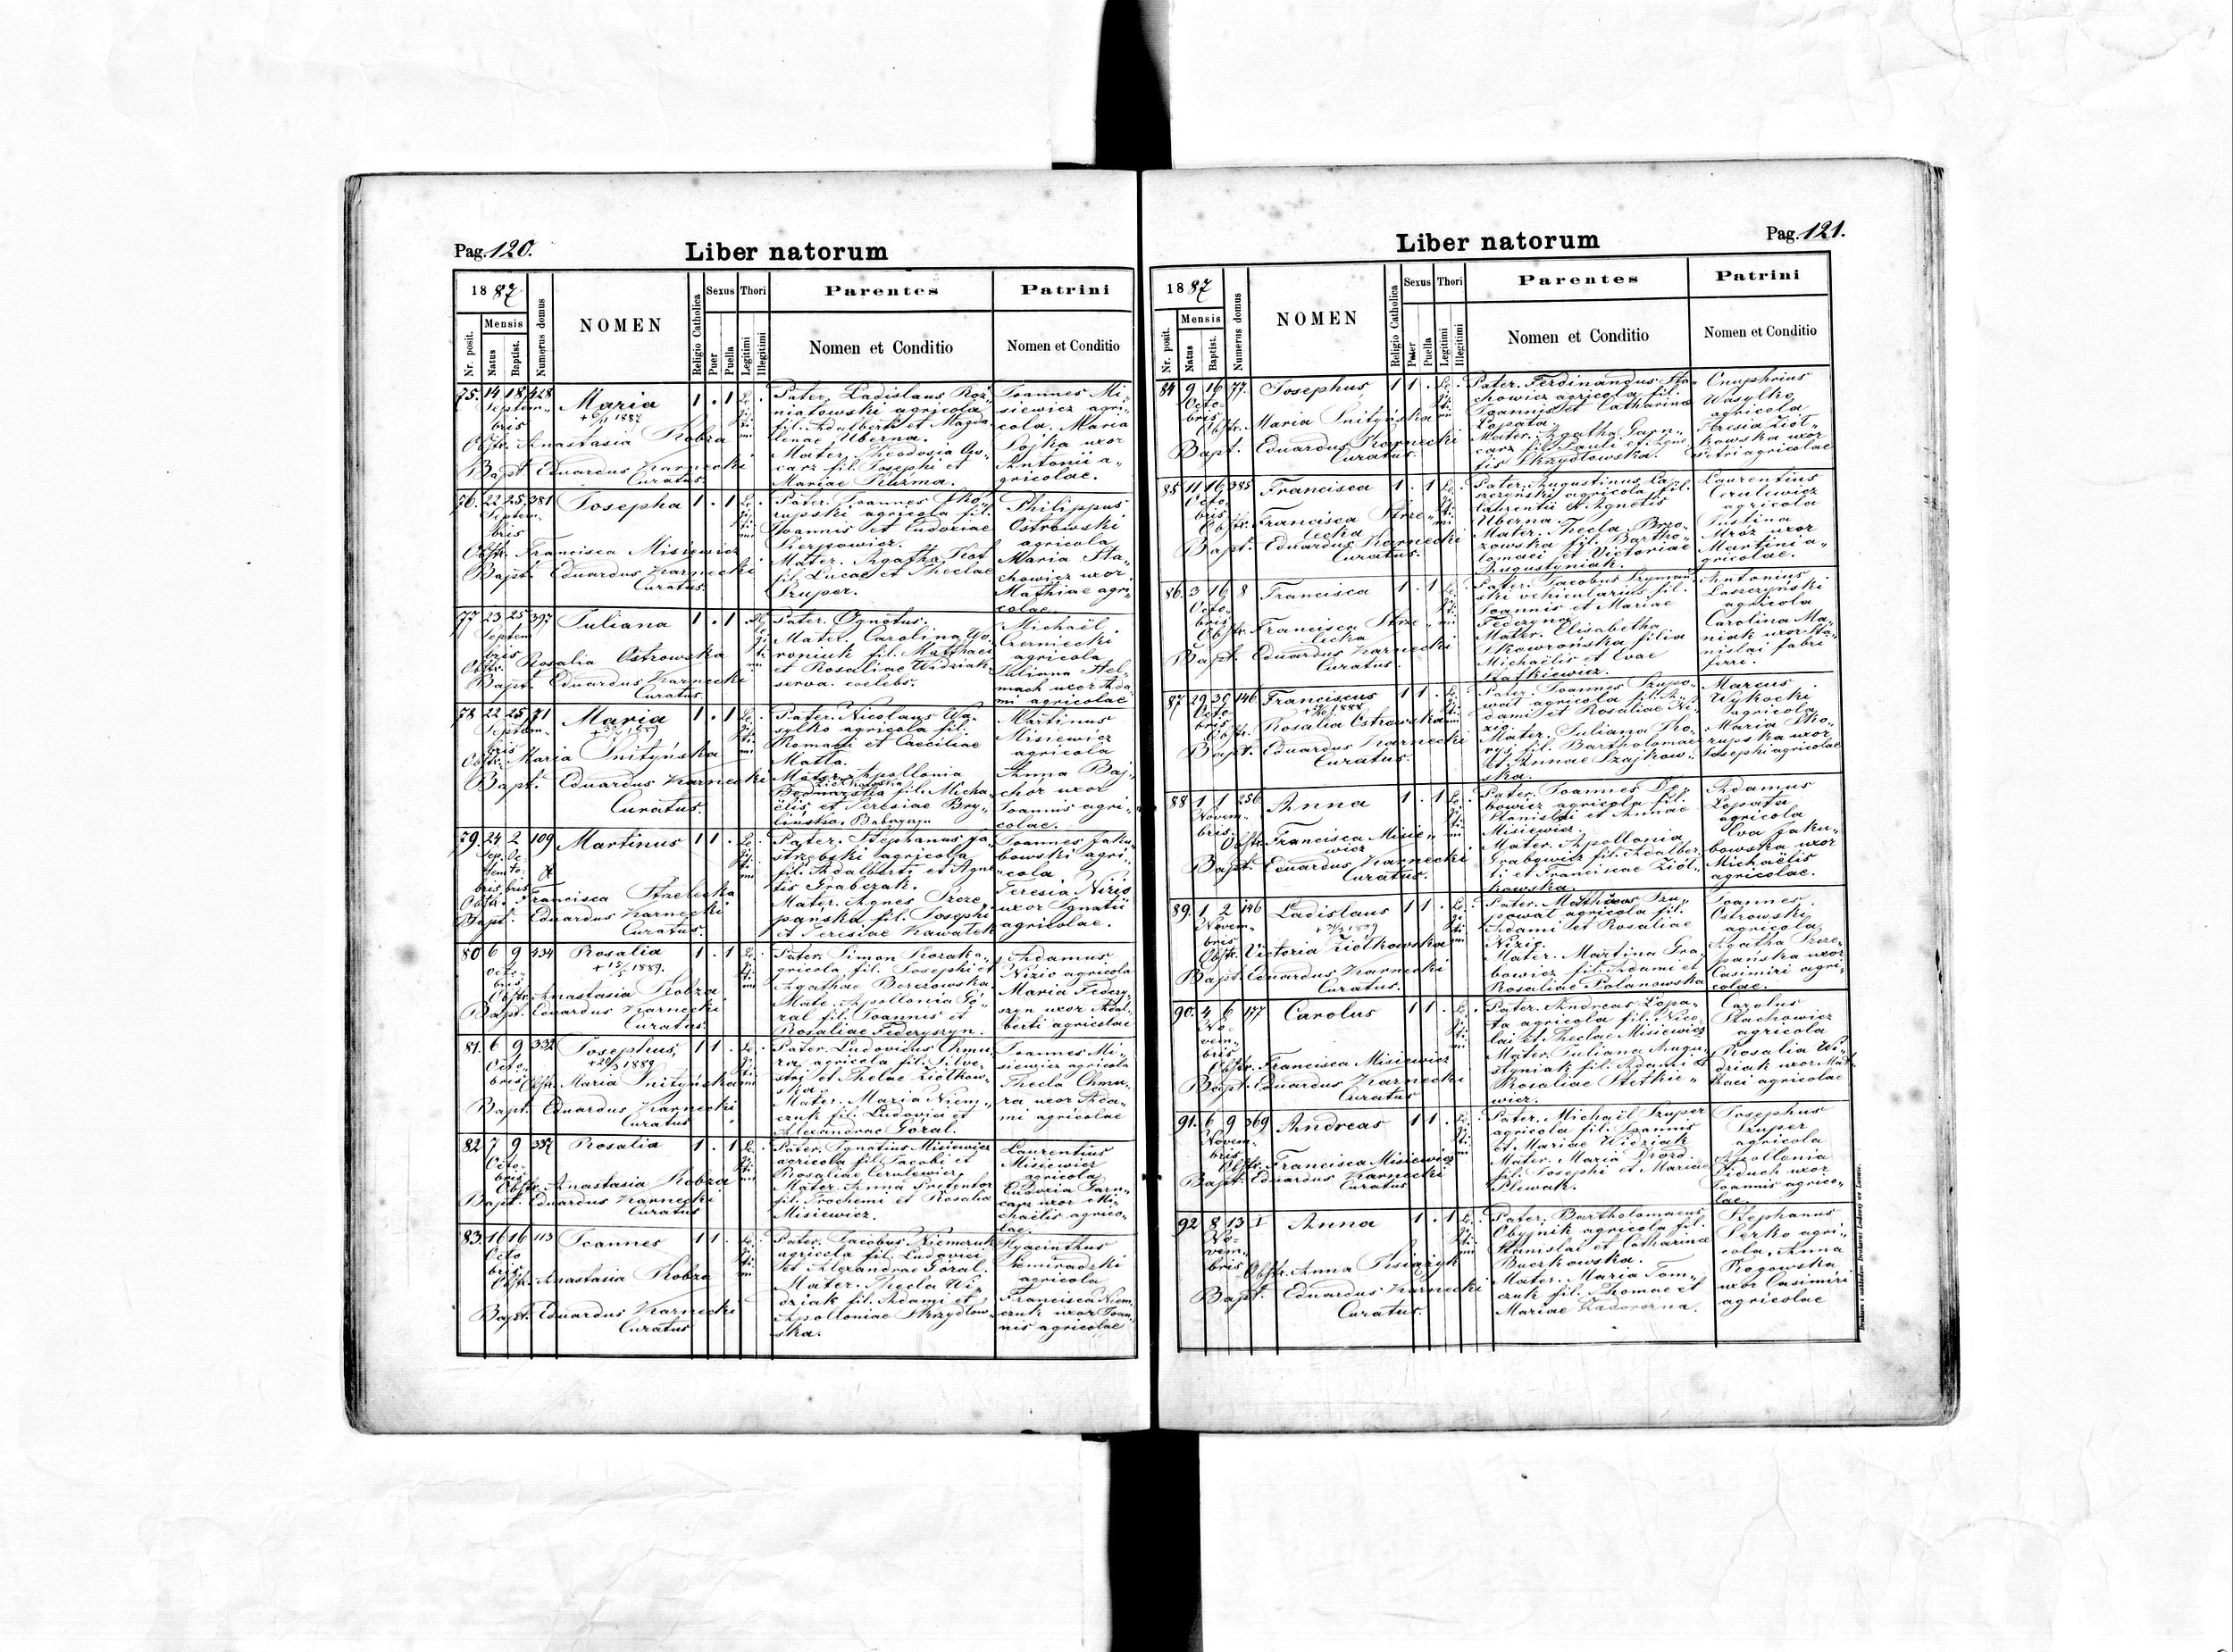 Pag. 120.
Liber natorum
1887
Nr. posit.
Mensis
Natus
Baptist.
Numerus domus
NOMEN
Religio Catholica
Sexus
Puer
Puella
Thori
Legitimi
Illegitimi
Parentes
Nomen et Conditio
Patrini
Nomen et Conditio
75. 14 18 428
Septem-
bris
Maria
1 . 1
Obstr. Anastasia Kobza
Bapt. Eduardus Karnecki
Curatus.
Pater. Ladislaus Roz-
niatowski agricola
fil. Adalberti et Magda
lenae Uberna.
Mater. Theodosia
carz fil. Josephi et
Mariae Kuzma.
Joannes Mi-
siewicz agri-
cola. Maria
Łojka uxor
Antonii a-
gricolae.
76. 22 25 381
Septem-
bris
Josepha
1 . 1
Obstr. Francisca Misiewicz
Bapt. Eduardus Karnecki
Curatus.
Pater. Joannes Sko-
rupski agricola fil.
Joannis et Eudoxiae
Sierpowicz.
Mater. Agatha Kot
fil. Lucae et Theclae
Szuper.
Philippus
Ostrowski
agricola
Maria Sta-
chowicz uxor
Mathiae agri-
colae.
77 23 25 397
Septem
bris
Juliana
1 . 1
Obstr. Rosalia Ostrowska
Bapt. Eduardus Karnecki
Curatus.
Pater. Ignotus.
Mater. Carolina Wo-
roniuk fil. Matthaei
et Rosaliae Widziak
serva. coelebs.
Michaël
Czerniecki
agricola
Juliana Hel-
mach uxor Ada-
mi agricolae
78 22 25 71
Septem-
bris
Maria
1 . 1
Obstr. Maria Snityńska
Bapt. Eduardus Karnecki
Curatus.
Pater. Nicolaus Wa-
sylko agricola fil.
Romani et Caeciliae
Matla.
Mater. Apollonia
fil. Micha-
ëlis et Teresiae Bry-
lińska.
Martinus
Misiewicz
agricola
Anna Baj-
chor uxor
Joannis agri-
colae.
79. 24 2 109
Sep. Oc
tem to-
bris bris
Martinus
1 1 .
Obstr. Francisca Strzelecka
Bapt. Eduardus Karnecki
Curatus.
Pater. Stephanus Ja-
strzębski agricola
fil. Adalberti et Agne-
tis Grabczak.
Mater. Agnes Szcze-
pańska fil. Josephi
et Teresiae Kawałek
Joannes Jaku-
bowski agri-
cola
Teresia Nizio
uxor Ignatii
agricolae.
80 6 9 434
Octo-
bris
Rosalia
1 . 1
Obstr. Anastasia Kobza
Bapt. Eduardus Karnecki
Curatus.
Pater. Simon Kozak a-
gricola fil. Josephi et
Agathae Berezowska
Mate. Apollonia Gó-
ral fil. Joannis et
Rosaliae Federyszyn.
Adamus
Nizio agricola
Maria Federy-
szyn uxor Adal-
berti agricolae
81. 6 9 332
Octo-
bris
Josephus,
1 1 .
Obstr. Maria Snityńska
Bapt. Eduardus Karnecki
Curatus
Pater. Ludovicus Chmu
ra agricola fil. Silve-
stri et Theclae Ziółkow-
ska.
Mater. Maria Niem-
czuk fil. Ludovici et
Alexandrae Góral.
Joannes Mi-
siewicz agricola
Thecla Chmu-
ra uxor Ada-
mi agricolae
82 7 9 337
Octo-
bris
Rosalia
1 . 1
Obstr. Anastasia Kobza
Bapt. Eduardus Karnecki
Curatus
Pater. Ignatius Misiewicz
agricola fil. Jacobi et
Rosaliae Cerulewicz
Mater. Anna Pretentor
fil. Prochemi et Rosalia
Misiewicz.
Laurentius
Misiewicz
agricola
Eudoxia Garn-
carz uxor Mi-
chaëlis agrico-
lae.
83. 16 16 113
Octo
bris
Joannes
1 1 .
Obstr. Anastasia Kobza
Bapt. Eduardus Karnecki
Curatus
Pater. Jacobus Niemczuk
agricola fil. Ludovici
et Alexandrae Góral.
Mater. Thecla Wi-
dziak fil. Adami et
Apolloniae Skrzydłow-
ska.
Hyacinthus
Siemiradzki
agricola
Francisca Niem
czuk uxor Joan-
nis agricolae
Pag. 121.
Liber natorum
1887
Nr. posit.
Mensis
Natus
Baptist.
Numerus domus
NOMEN
Religio Catholica
Sexus
Puer
Puella
Thori
Legitimi
Illegitimi
Parentes
Nomen et Conditio
Patrini
Nomen et Conditio
84 9 16 77.
Octo-
bris
Josephus
1 1 .
Obstr. Maria Snityńska
Bapt. Eduardus Karnecki
Curatus.
Pater. Ferdinandus Sta-
chowicz agricola fil.
Joannis et Catharina
Łopata.
Mater. Agatha Garn-
carz fil. Pauli et Agne
tis Skrzydłowska.
Onuphrius
Wasylko
agricola
Teresia Ziół-
kowska uxor
Petri agricolae
85 11 16 385
Octo-
bris
Francisca
1 . 1
Obstr. Francisca Strze-
lecka
Bapt. Eduardus Karnecki
Curatus.
Pater. Augustinus La-
szczyński agricola fil.
Laurentii et Agnetis
Uberna.
Mater. Thecla Brzo-
zowska fil. Bartho-
lomaei et Victoriae
Augustyniak.
Laurentius
Cerulewicz
agricola
Justina
Mróz uxor
Martini a-
gricolae.
86. 3 16 8
Octo-
bris
Francisca
1 . 1
Obstr. Francisca Strze-
lecka
Bapt. Eduardus Karnecki
Curatus.
Pater. Jacobus Szymań
ski vehicularius fil.
Joannis et Mariae
Federyna
Mater. Elisabetha
Skowrońska filia
Michaëlis et Evae
Stafkiewicz.
Antonius
Laszczyński
agricola
Carolina Ma-
niak uxor Sta-
nislai fabri
ferri.
87 29 30 146
Octo-
bris
Franciscus
1 1 .
Obstr. Rosalia Ostrowska
Bapt. Eduardus Karnecki
Curatus.
Pater. Joannes Szupo-
wał agricola fil. A-
dami et Rosaliae Ni-
zio.
Mater. Juliana Sko-
rys fil. Bartholomaei
et Annae Szajkow-
ska.
Marcus
Wykocki
agricola
Maria Sko-
rupska uxor
Josephi agricolae
88 1 1 256
Novem-
bris
Anna
1 . 1
Obstr. Francisca Misie-
wicz
Bapt. Eduardus Karnecki
Curatus.
Pater. Joannes De-
bowicz agricola fil.
Stanislai et Annae
Misiewicz.
Mater. Apollonia
Grabowicz fil. Adalber
ti et Franciscae Ziół-
kowska.
Adamus
Łopata
agricola
Eva Jaku-
bowska uxor
Michaëlis
agricolae.
89. 1 2 146
Novem-
bris
Ladislaus
1 1 .
Obstr. Victoria Ziółkowska
Bapt. Eduardus Karnecki
Curatus.
Pater. Matthaeus Szu-
pował agricola fil.
Adami et Rosaliae
Nizio.
Mater. Martina Gra-
bowicz fil. Adami et
Rosaliae Polanowska
Joannes
Ostrowski
agricola
Agatha Szcze-
pańska uxor
Casimiri agri-
colae.
90. 4 6 177
No-
vem-
bris
Carolus
1 1 .
Obstr. Francisca Misiewicz
Bapt. Eduardus Karnecki
Curatus
Pater. Andreas Łopa-
ta agricola fil. Nico-
lai et Theclae Misiewicz
Mater. Juliana Augu-
styniak fil. Adami et
Rosaliae Stetkie-
wicz.
Carolus
Stachowicz
agricola
Rosalia Wi-
dziak uxor Mat-
thaei agricolae
91. 6 9 369
Novem-
bris
Andreas
1 1 .
Obstr. Francisca Misiewicz
Bapt. Eduardus Karnecki
Curatus
Pater. Michaël Szuper
agricola fil. Joannis
et Mariae Widziak
Mater. Maria Drozd
fil. Josephi et Mariae
Plewak.
Josephus
Szuper
agricola
Apollonia
Diduch uxor
Joannis agrico-
lae.
92 8 13 I
No-
vem-
bris
Anna
1 . 1
Obstr. Anna Fisiażyk
Bapt. Eduardus Karnecki
Curatus.
Pater. Bartholomaeus
Obyjnik agricola fil.
Stanislai et Catharinae
Buczkowska.
Mater. Maria Tom-
czuk fil. Thomae et
Mariae Zadorozna.
Stephanus
Serko agri-
cola. Anna
Rogowska
uxor Casimiri
agricolae
Drukiem i nakładem Drukarni Ludowej we Lwowie.